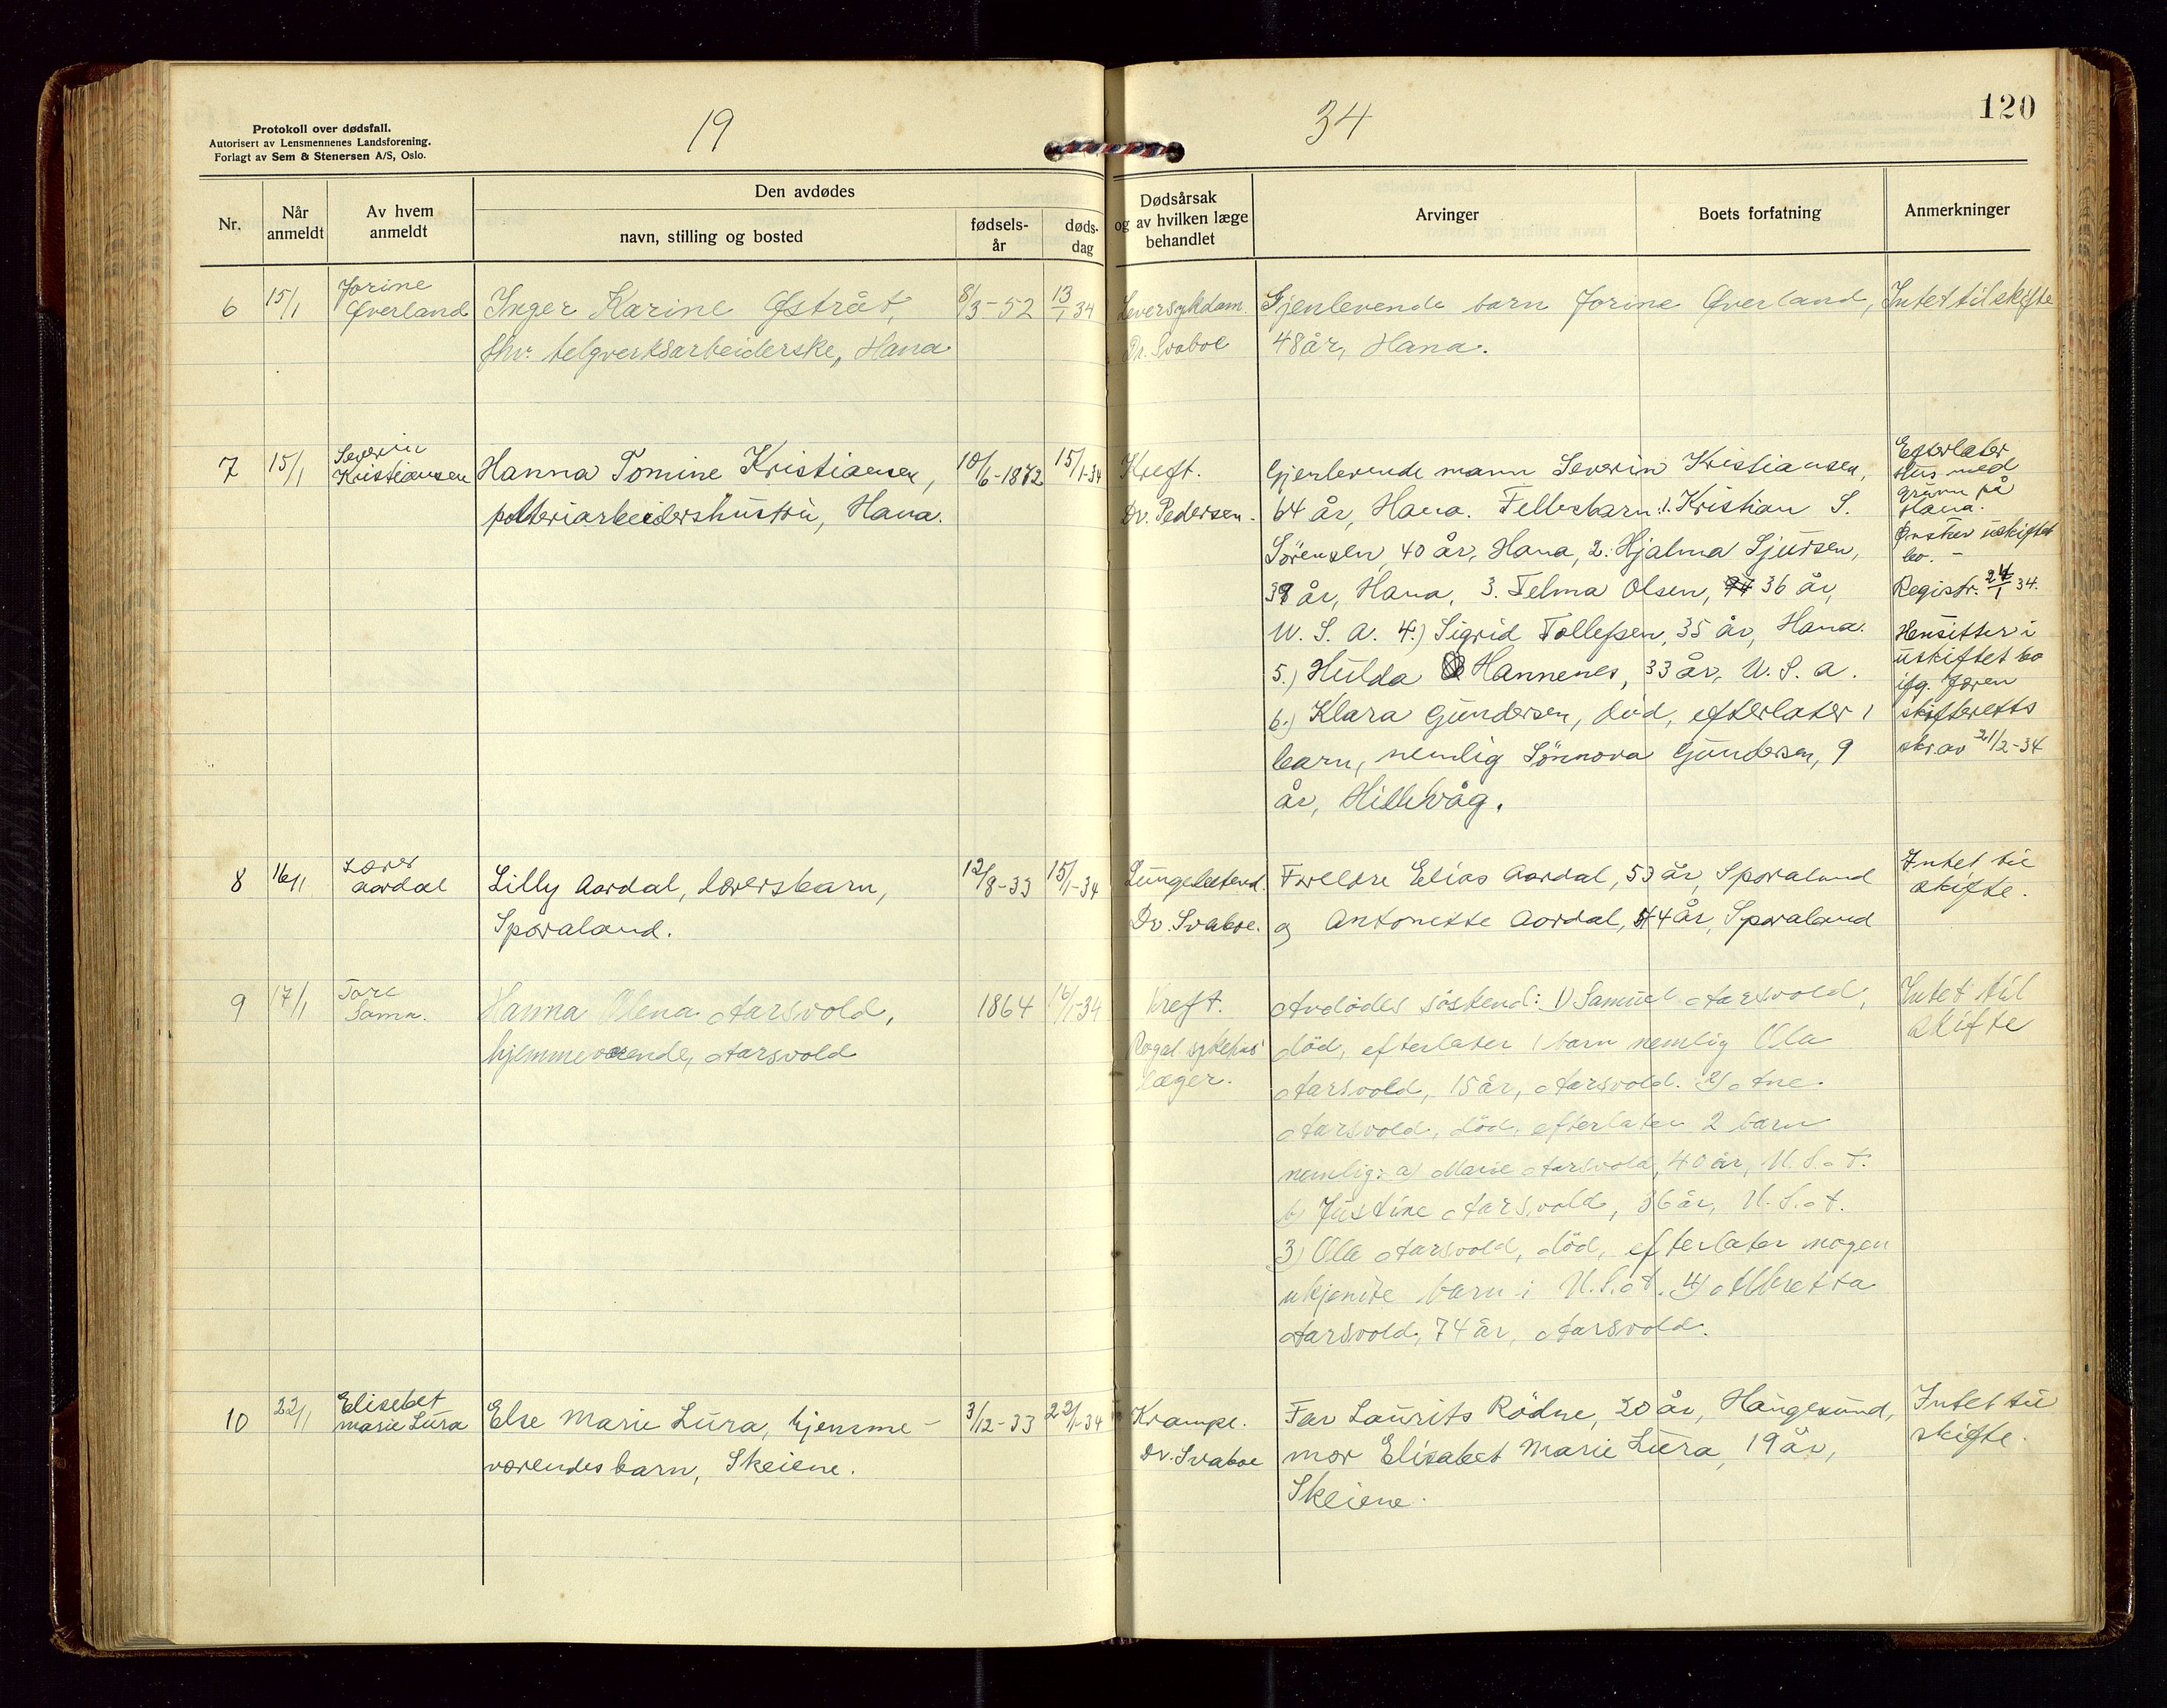 Protokoll over dødsfall.
Autorisert av Lensmennenes Landsforening.
Forlagt av Sem & Stenersen A/S, Oslo.
19
34
120
Nr.
Når anmeldt
Av hvem anmeldt
Den avdødes
navn, stilling og bosted
fødsels-år
døds-dag
Dødsårsak og av hvilken læge behandlet
Arvinger
Boets forfatning
Anmerkninger
6 15/1 Jorine Øverland Inger Karine Østråt, 8/3-52 13/1 34 Leversykdam. Gjenlevende barn Jorine Øverland, Intet til skifte
fhv. telgverksarbeiderske, Hana Dr. Svaboe 48 år, Hana.
7 15/1 Severin Kristiansen Hanna Tomine Kristiansen, 10/6-1872 15/1-34 Kreft. Gjenlevende mann Severin Kristiansen, Efterlater hus med
potteriarbeidershustru, Hana. Dr. Pedersen. 64 år, Hana. Fellesbarn: 1. Kristian S. grunn på Hana.
Sörensen, 40 år, Hana, 2. Hjalma Sjursen, Ønsker uskiftet bo. -
38 år, Hana, 3. Telma Olsen, 36 år, Registr. 24/1 34.
U. S. A. 4.) Sigrid Tollefsen, 35 år, Hana. Hensitter i
5.) Hulda Hannenes, 33 år, U. S. A. uskiftet bo
6.) Klara Gundersen, död, efterlater 1 ifg. Jæren skifteretts
barn, nemlig Sönnova Gundersen, 9 skr. av 21/2-34
år, Hillevåg.
8 16/1 Lærer Aardal Lilly Aardal, lærersbarn, 12/8-33 15/1-34 Lungebetend. Foreldre Elias Aardal, 53 år, Sporaland Intet til
Sporaland. Dr. Svaboe. og Antonette Aardal, 44 år, Sporaland skifte.
9 17/1 Tore Hanna Olena Aarsvold, 1864 16/1-34 Kreft. Avdödes söskend: 1) Samuel Aarsvold, Intet til
hjemmeværende, Aarsvold Rogal. sykehus' död, efterlater 1 barn nemlig Ola skifte
læger. Aarsvold, 15 år, Aarsvold. 2) Ane
Aarsvold, död, efterlater 2 barn
nemlig: a) Marie Aarsvold, 40 år, U. S. A.
b) Justine Aarsvold, 36 år, U. S. A.
3) Ola Aarsvold, död, efterlater nogen
ukjente barn i U. S. A. 4) Albretta
Aarsvold, 74 år, Aarsvold.
10 22/1 Elisebet Marie Lura Else Marie Lura, hjemme- 3/12-33 22/1-34 Krampe. Far Laurits Rödne, 20 år, Haugesund, Intet til
værendes barn, Skeiene. Dr. Svaboe mor Elisabet Marie Lura, 19 år, skifte.
Skeiene.